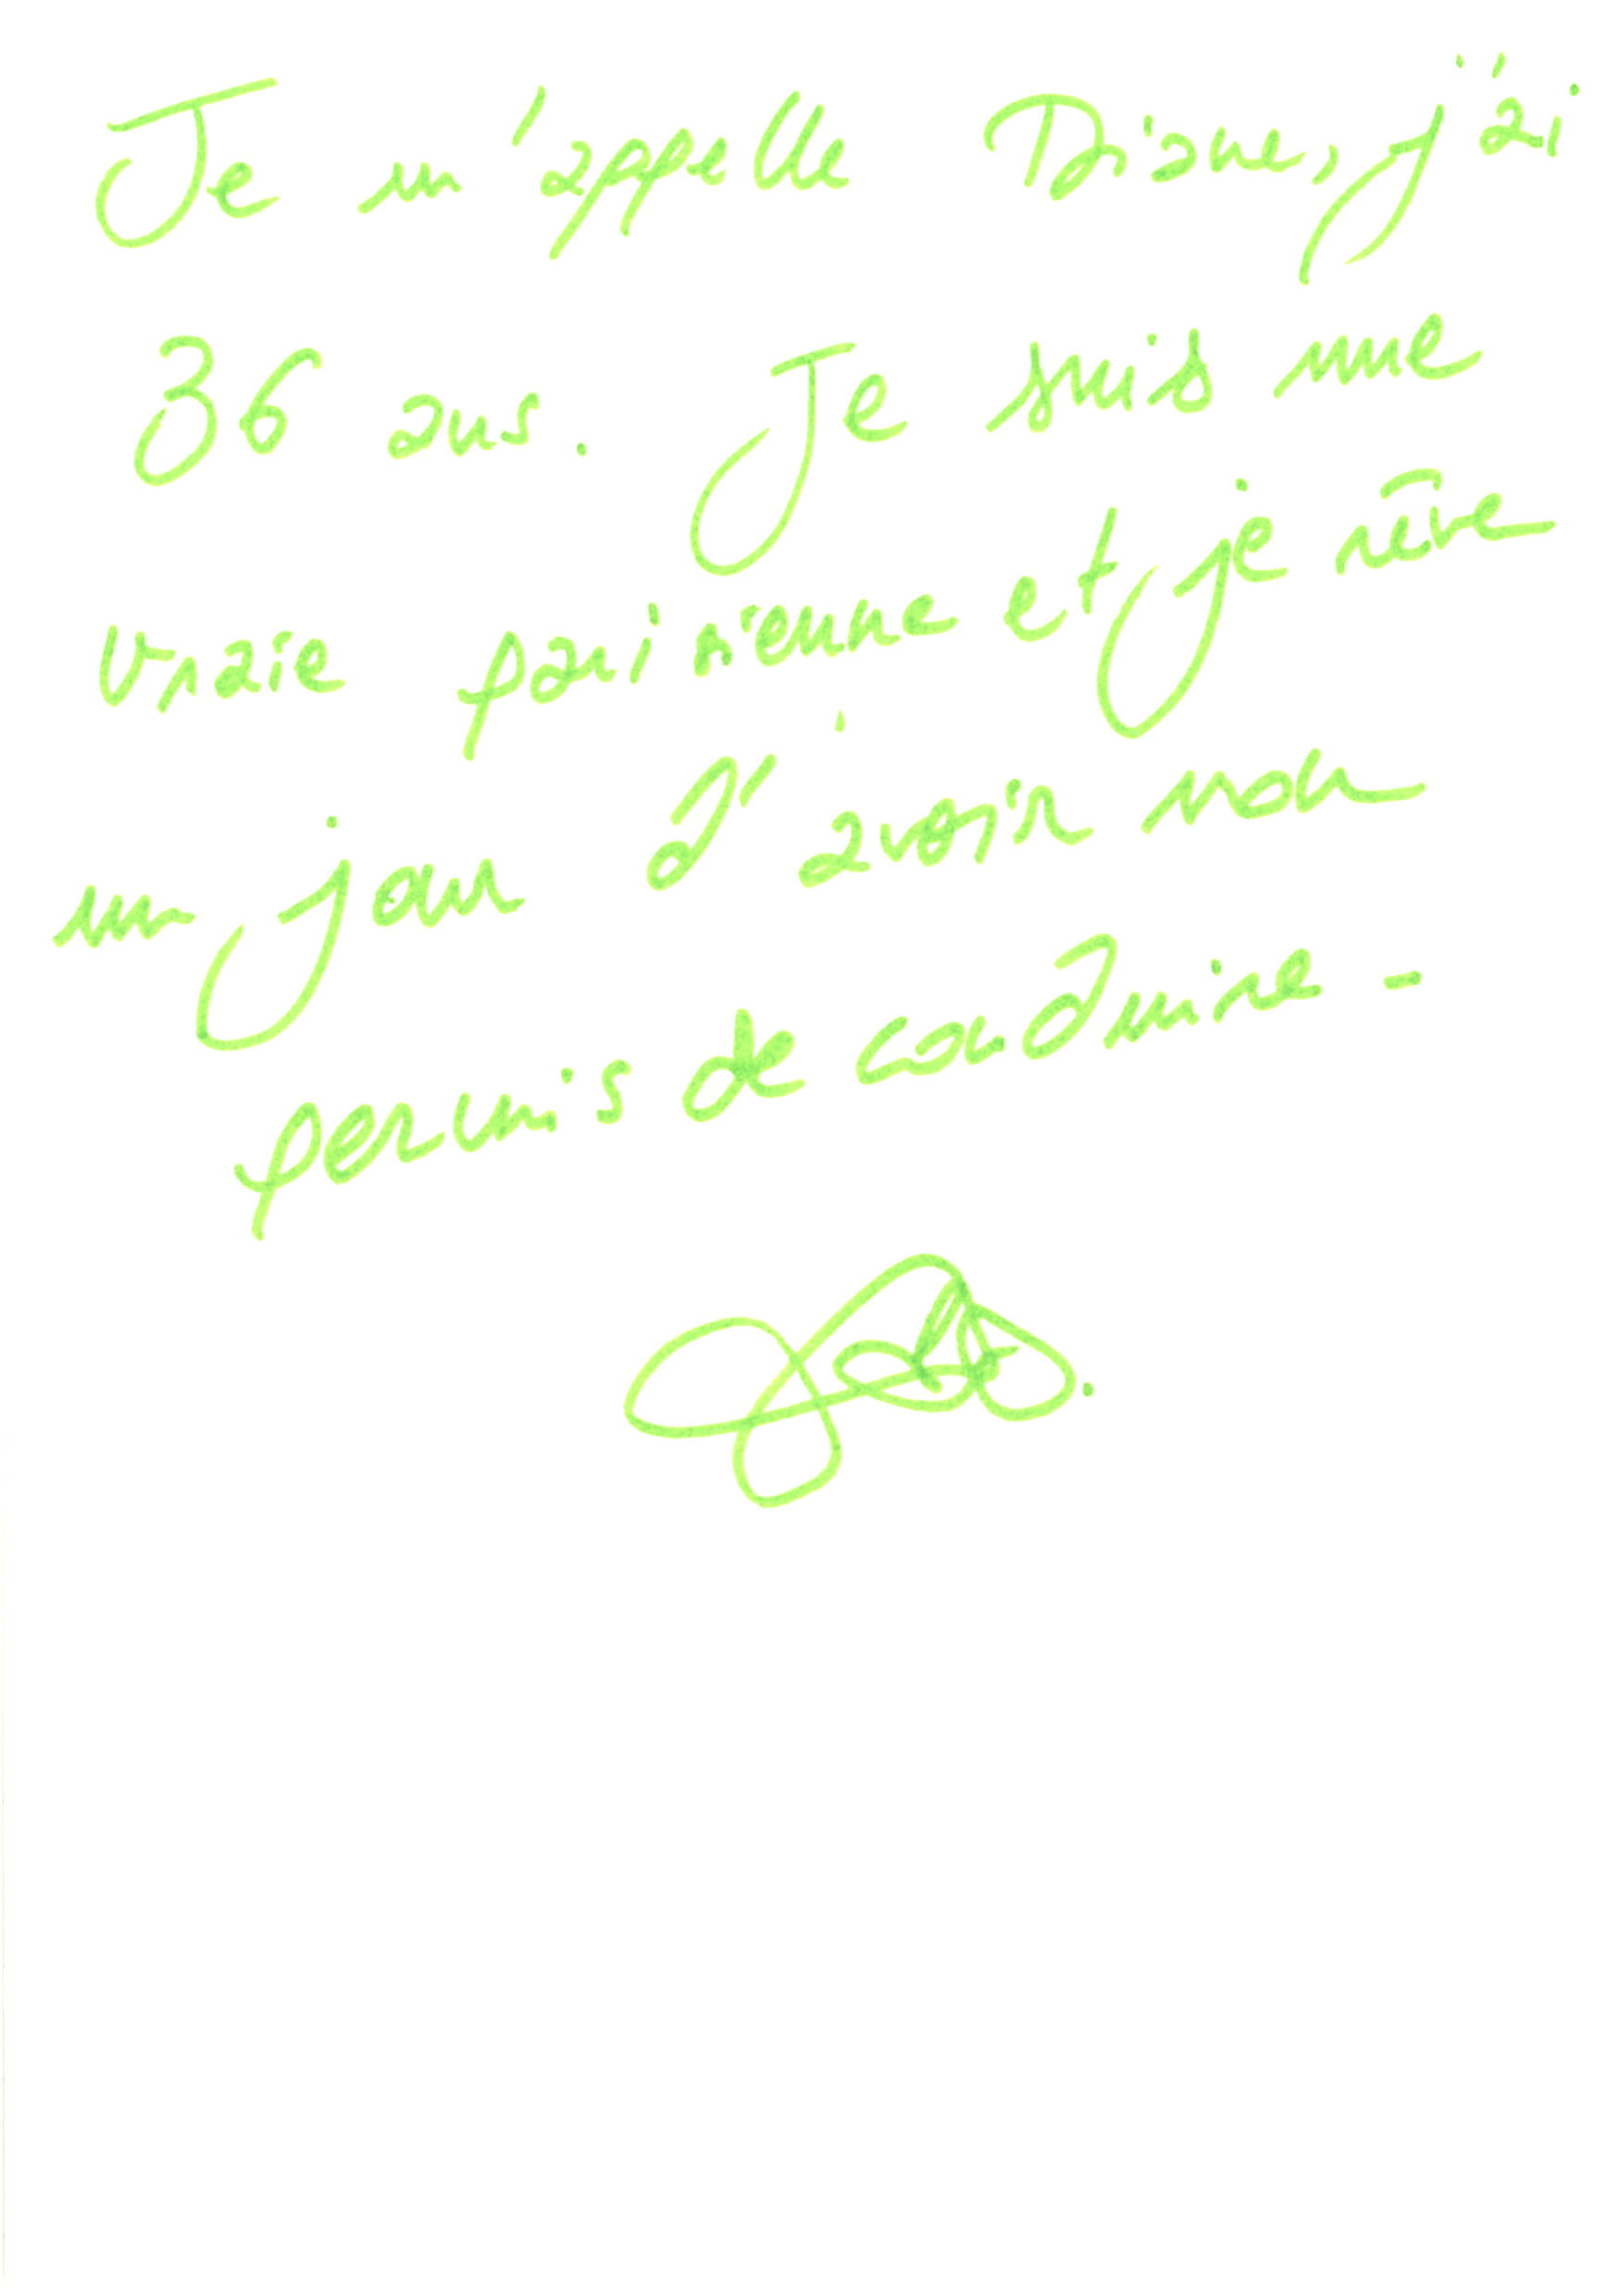 Je m'appelle Diane, j'ai
36 ans. Je suis une
vraie parisienne et je rêve
un jour d'avoir mon
permis de conduire -